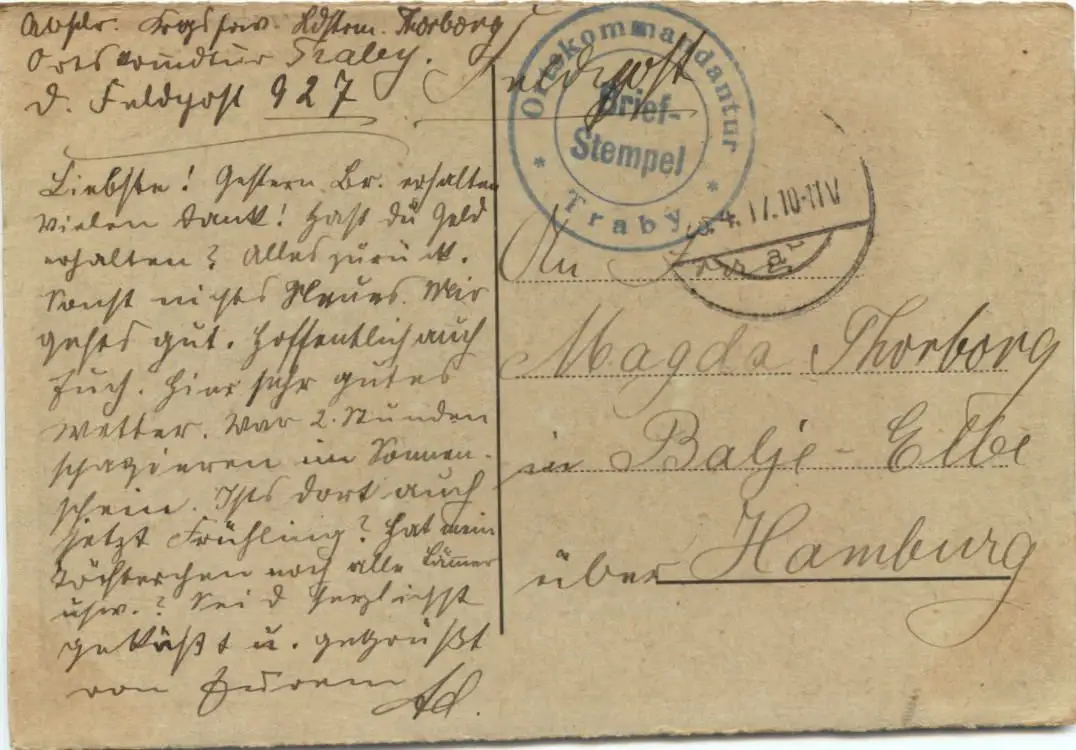 Absdr. Krgsfrw. Ldstrm. Thorborg
Ortskomdtur Traby.
D. Feldpost 927
Feldpost
Ortskommandantur
Brief-
Stempel
* Traby *
Liebste! Gestern Br. erhalten
vielen Dank! Hast du Geld
erhalten? Alles zurück.
Sonst nichts Neues. Mir
gehts gut. Hoffentlich auch
Euch. Hier sehr gutes
Wetter. War 2. Stunden
spazieren im Sonnen-
schein. Ists dort auch
jetzt Frühling? Hat mein
Töchterchen noch alle Lämmer
usw.? Seid herzlichst
geküßt u. gegrüßt
von Eurem Ad.
4.17.10-11V
An
Magda Thorborg
in Balje-Elbe
über Hamburg